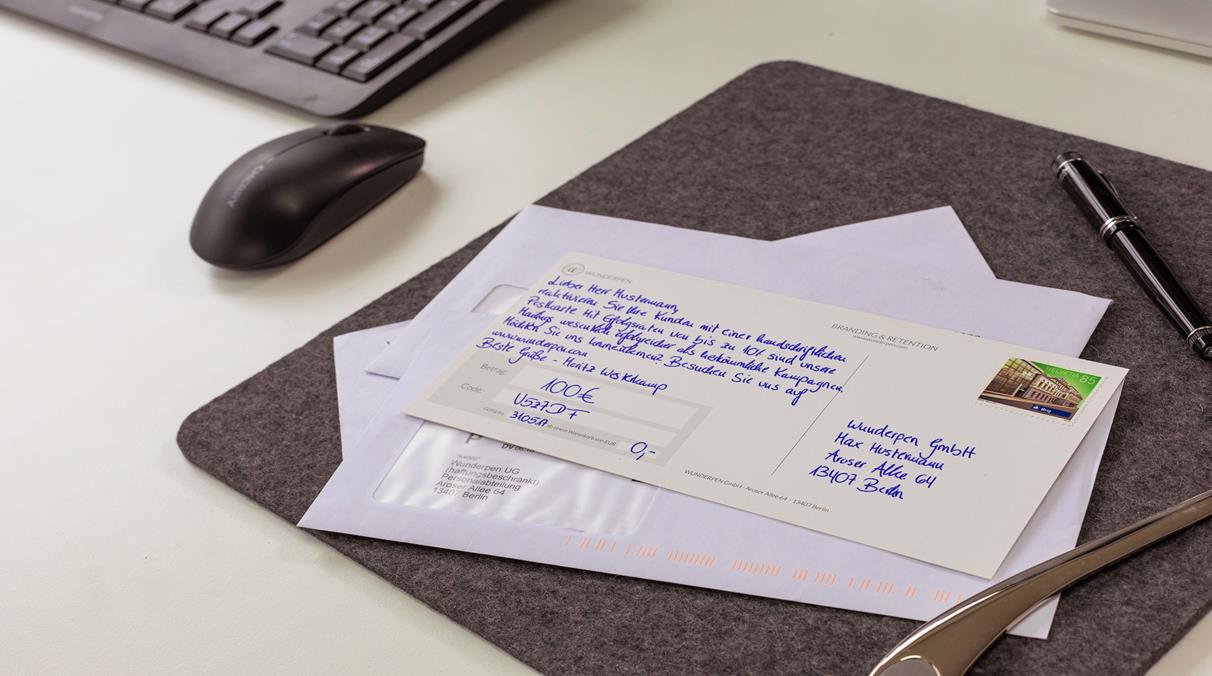 CHERRY
WUNDERPEN
Lieber Herr Mustermann,
reaktivieren Sie Ihre Kunden mit einer handschriftlichen
Postkarte. Mit Erfolgsraten von bis zu 10% sind unsere
Mailings wesentlich erfolgreicher als herkömmliche Kampagnen.
Möchten Sie uns kennenlernen? Besuchen Sie uns auf
www.wunderpen.com
Beste Grüße - Moritz Westkamp
Betrag:
100€
Code:
U527DF
Gültig bis:
ab einem Warenkorb von EUR:
0,-
BRANDING & RETENTION
www.wunderpen.com
HELVETIA 85
Brig
Wunderpen GmbH
Max Mustermann
Aroser Allee 64
13407 Berlin
WUNDERPEN GmbH · Aroser Allee 64 · 13407 Berlin
Wunderpen UG
(haftungsbeschränkt)
Personalabteilung
Aroser Allee 64
13407 Berlin